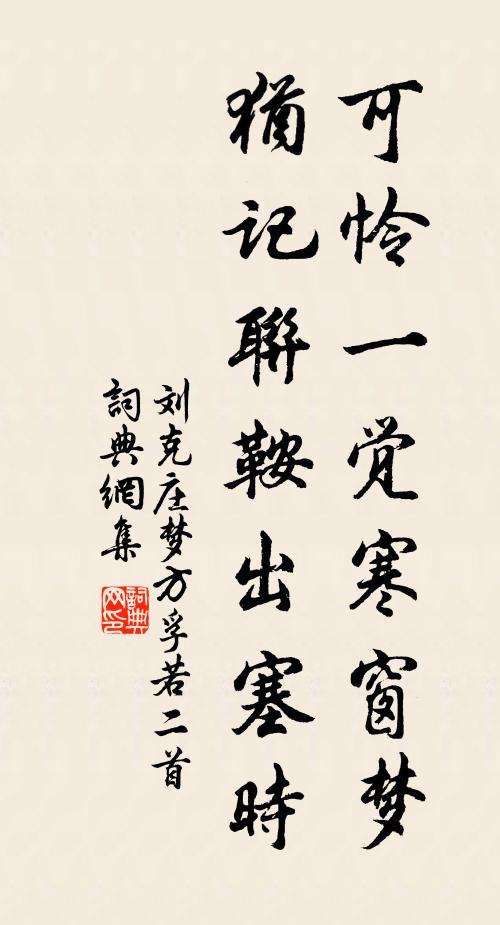 可怜一觉寒窗梦
猶记聯鞍出塞時
刘克庄梦方孚若二首
詞典網集
詞典网印